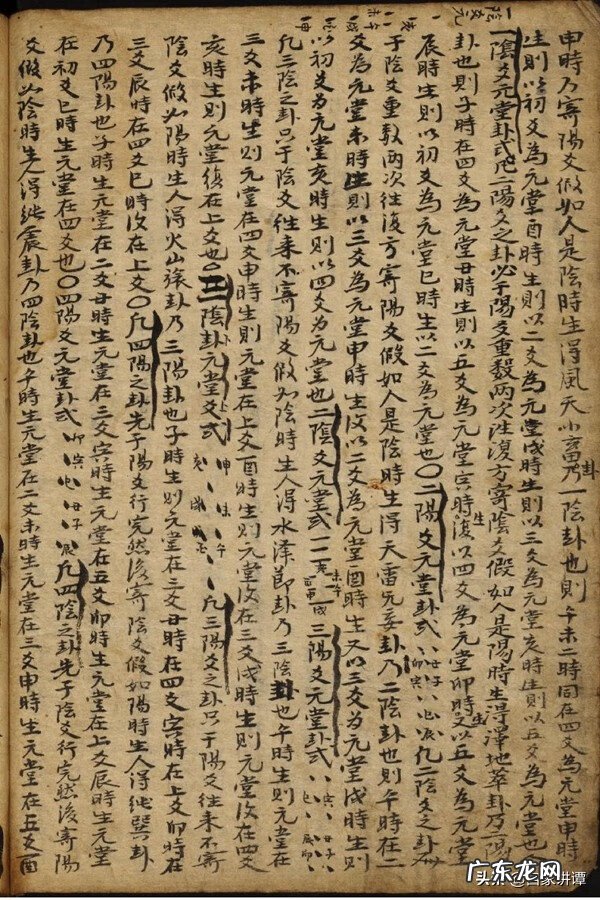 一陰爻元
申時乃寄陽爻假如人是陰時生得風天小畜乃一陰卦也則午未二時同在四爻為元堂申時
卦
生則以初爻為元堂酉時生則以二爻為元堂戌時生則以三爻為元堂亥時生則以五爻為元堂也
一陰爻元堂卦式凡二陽爻之卦必于陽爻重數兩次往復方寄陰爻假如人是陽時生得澤地萃卦乃二陽
卦也則子時在四爻為元堂丑時生則以五爻為元堂寅時復以四爻為元堂卯時又以五爻為元堂
生
生
辰時生則以初爻為元堂巳時生以二爻為元堂也〇二陽爻元堂卦式 凡二陰爻之卦
于陰爻重數兩次往復方寄陽爻假如人是陰時生得天雷无妄卦乃二陰卦也則午時在二
爻為元堂未時生則以三爻為元堂申時生復以二爻為元堂酉時生又以三爻為元堂戌時生則
以初爻為元堂亥時生則以四爻為元堂也二陰爻元堂式 三陽爻元堂卦式
凡三陰之卦只于陰爻往来不寄陽爻假如陰時生人得水澤節卦乃三陰卦也午時生則元堂在
三爻未時生則元堂在四爻申時生則元堂在上爻酉時生則元堂復在三爻戌時生則元堂復在四爻
亥時生則元堂復在上爻也〇三陰卦元堂爻式 凡三陽爻之卦只于陽爻往来不寄
陰爻假如陽時生人得火山旅卦乃三陽卦也子時生則元堂在三爻丑時在四爻寅時在上爻卯時在
三爻辰時在四爻巳時復在上爻〇凡四陽之卦先于陽爻行完然後寄陰爻假如陽時生人得純巽卦
乃四陽卦也子時生元堂在二爻丑時生元堂在三爻寅時生元堂在五爻卯時生元堂在上爻辰時生元堂
在初爻巳時生元堂在四爻也〇四陽爻元堂卦式 凡四陰之卦先于陰爻行完然後寄陽
爻假如陰時生人得純震卦乃四陰卦也午時生元堂在二爻未時生元堂在三爻申時生元堂在五爻酉
广东龙网
头条@百家讲谭